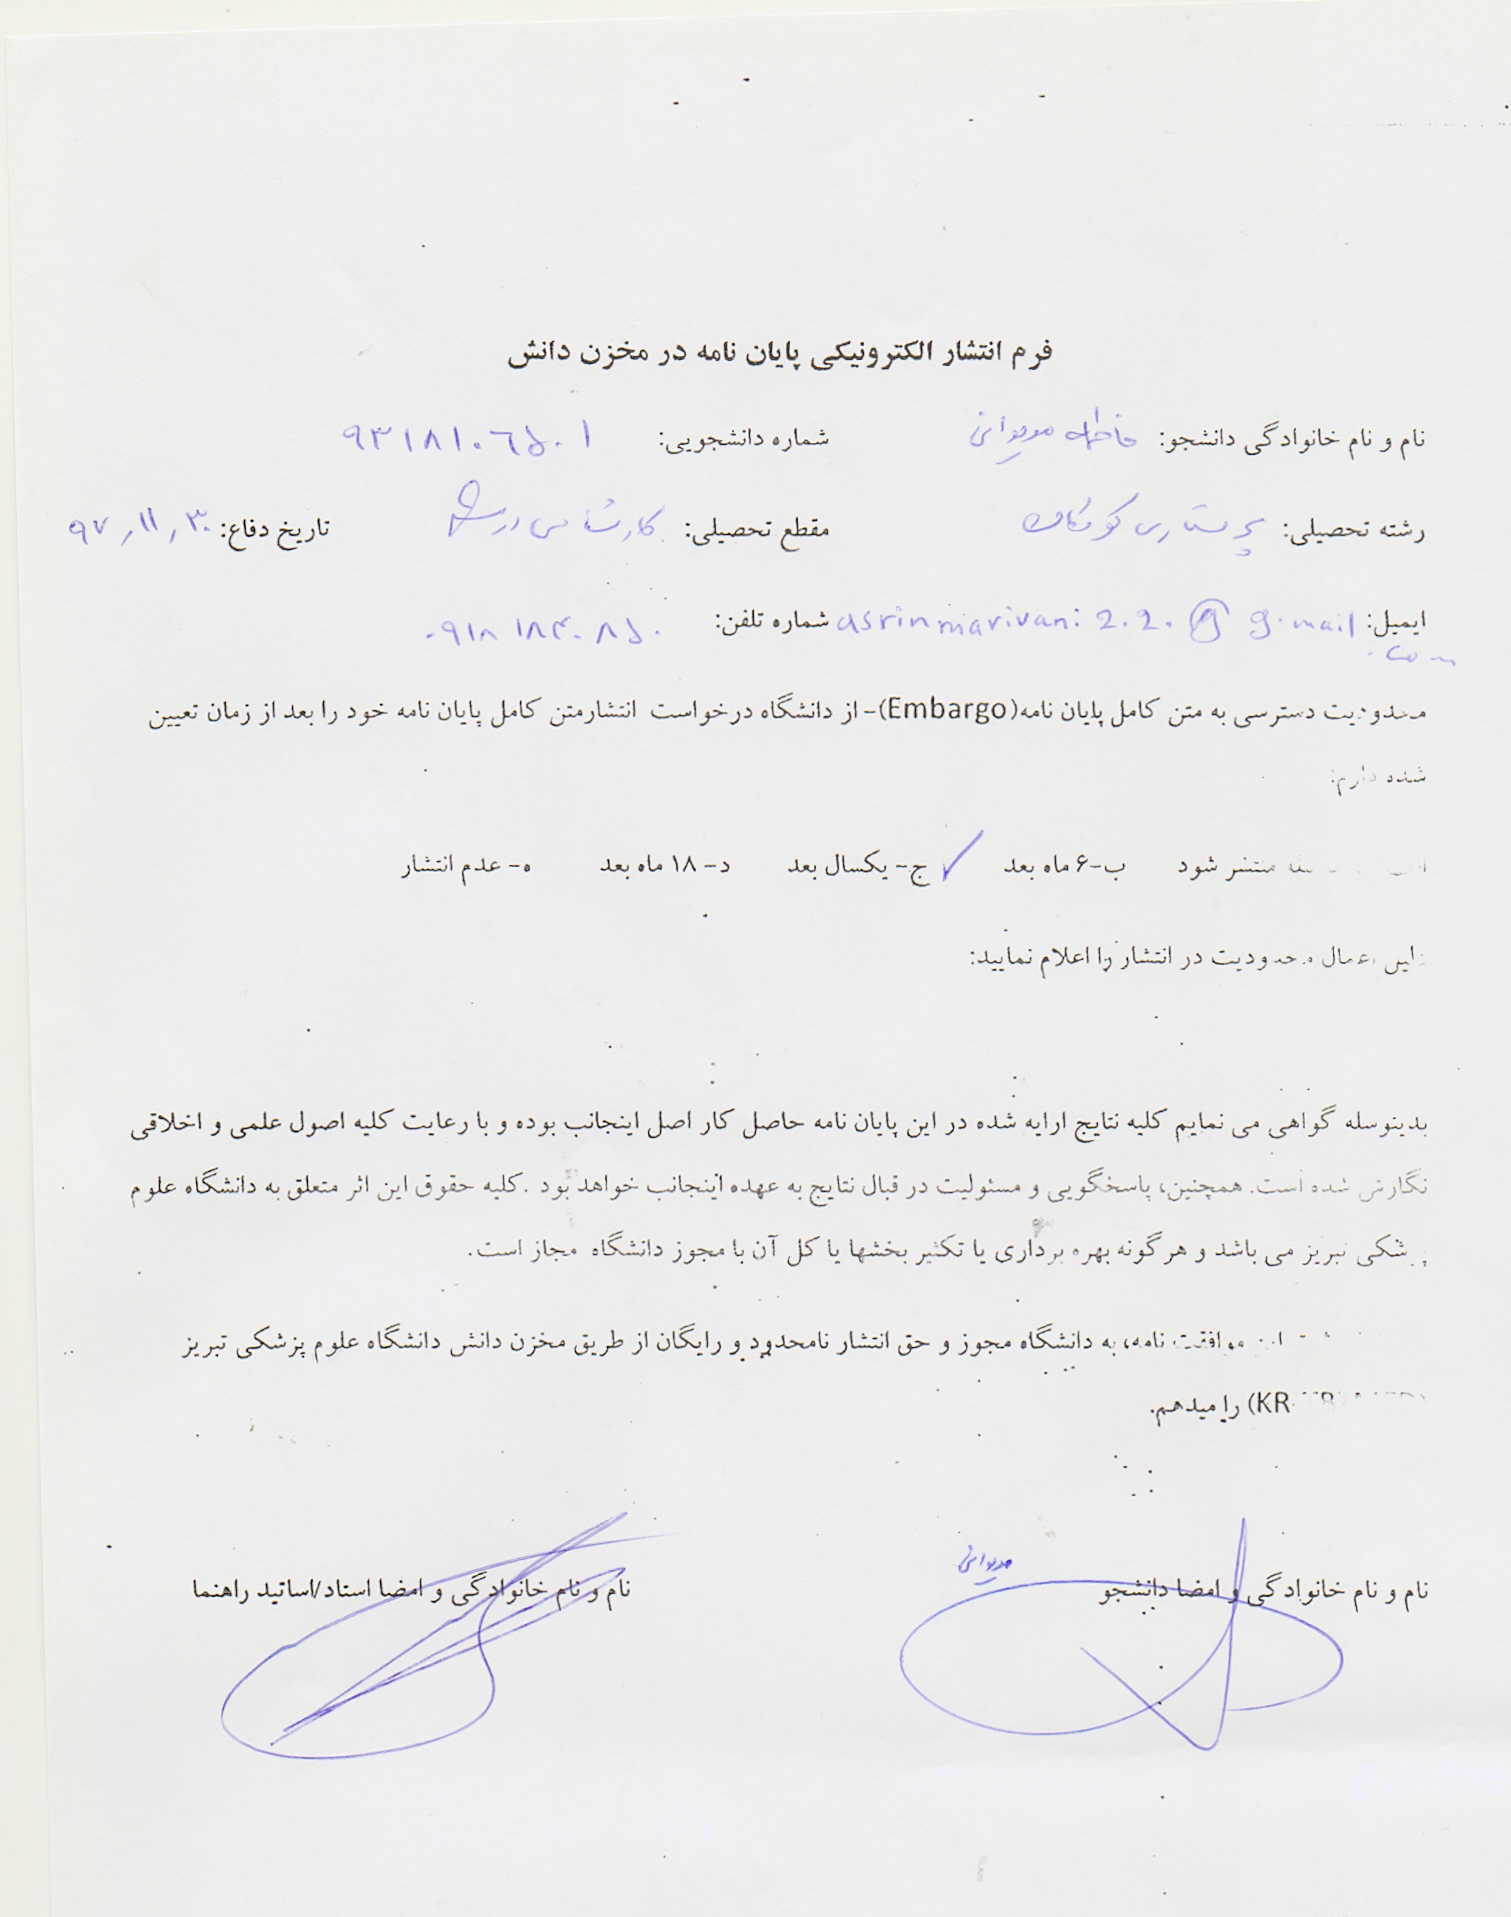 فرم انتشار الکترونیکی پایان نامه در مخزن دانش
نام و نام خانوادگی دانشجو: فاطمه مریوانی شماره دانشجویی: ۹۳۱۸۱۰۶۵۰۱
رشته تحصیلی: پرستاری کودکان مقطع تحصیلی: کارشناسی ارشد تاریخ دفاع: ۹۷,۱۱,۳۰
ایمیل: asrinmarivani 2.2. @ g.mail شماره تلفن: ۰۹۱۸ ۱۸۳۰۸۵۰
.com
محدودیت دسترسی به متن کامل پایان نامه(Embargo)- از دانشگاه درخواست انتشارمتن کامل پایان نامه خود را بعد از زمان تعیین
شده دارم:
منتشر شود ب-۶ ماه بعد ✓ ج- یکسال بعد د- ۱۸ ماه بعد ه- عدم انتشار
اعمال محدودیت در انتشار را اعلام نمایید:
بدینوسله گواهی می نمایم کلیه نتایج ارایه شده در این پایان نامه حاصل کار اصل اینجانب بوده و با رعایت کلیه اصول علمی و اخلاقی
نگارش شده است. همچنین، پاسخگویی و مسئولیت در قبال نتایج به عهده اینجانب خواهد بود .کلیه حقوق این اثر متعلق به دانشگاه علوم
پزشکی تبریز می باشد و هرگونه بهره برداری یا تکثیر بخشها یا کل آن با مجوز دانشگاه مجاز است.
این موافقت نامه، به دانشگاه مجوز و حق انتشار نامحدود و رایگان از طریق مخزن دانش دانشگاه علوم پزشکی تبریز
را میدهم.
مریوانی
نام و نام خانوادگی و امضا دانشجو نام و نام خانوادگی و امضا استاد/اساتید راهنما